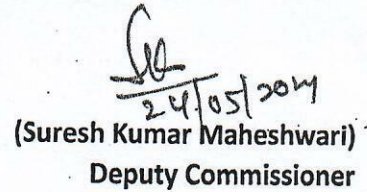 24/05/2024
(Suresh Kumar Maheshwari)
Deputy Commissioner